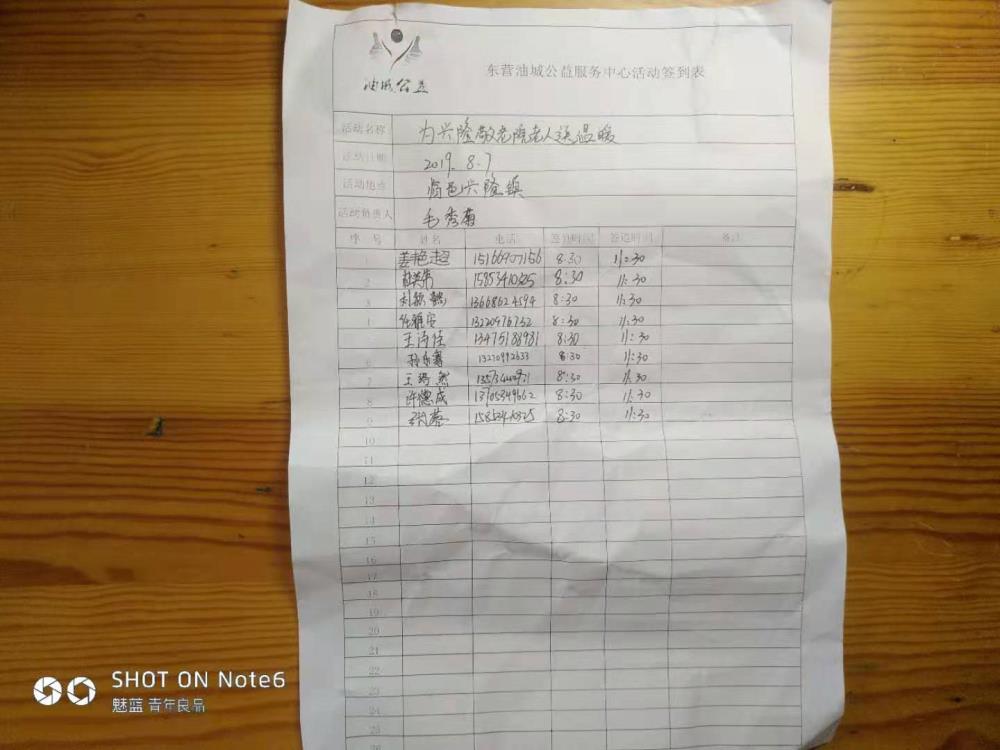 油城公益
东营油城公益服务中心活动签到表
活动名称 为兴隆敬老院老人送温暖
活动日期 2019.8.7
活动地点 临邑兴隆镇
活动负责人 毛秀菊
序号 姓名 电话 签到时间 签退时间 备注
1 姜艳超 15166907156 8:30 11:30
2 15853410325 8:30 11:30
3 13668624594 8:30 11:30
4 任雅安 13220976732 8:30 11:30
王诗佳 13475188981 8:30 11:30
6 13210992633 8:30 11:30
7 王 然 8:30 11:30
8 许德成 13705349662 8:30 11:30
9 15853410325 8:30 11:30
10
11
12
13
14
15
16
17
18
19
20
21
22
23
24
25
26
SHOT ON Note6
魅蓝 青年良品